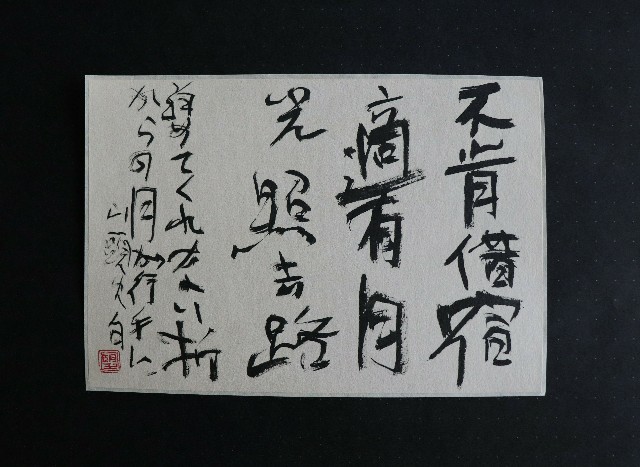 不肯借宿
適有月
光照去路
泊めてくれない折
からの月が行手に
山頭火句